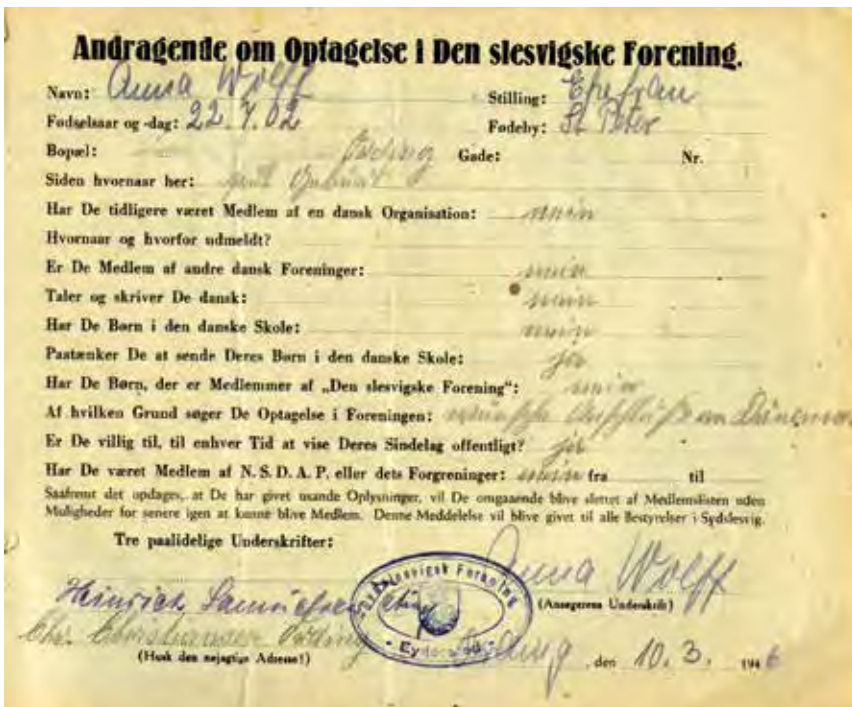 Andragende om Optagelse i Den slesvigske Forening.
Navn: Anna Wolff Stilling: Ehefrau
Fødselsaar og -dag: 22.7.02 Fødeby: St Peter
Bopæl: Ording Gade: Nr.
Siden hvornaar her: seit Geburt
Har De tidligere været Medlem af en dansk Organisation: nein
Hvornaar og hvorfor udmeldt?
Er De Medlem af andre dansk Foreninger: nein
Taler og skriver De dansk: nein
Har De Børn i den danske Skole: nein
Paatænker De at sende Deres Børn i den danske Skole: ja
Har De Børn, der er Medlemmer af „Den slesvigske Forening“: nein
Af hvilken Grund søger De Optagelse i Foreningen: wünsche Anschluß an Dänemark
Er De villig til, til enhver Tid at vise Deres Sindelag offentligt? ja
Har De været Medlem af N. S. D. A. P. eller dets Forgreninger: nein fra til
Saafremt det opdages, at De har givet usande Oplysninger, vil De omgaaende blive slettet af Medlemslisten uden
Muligheder for senere igen at kunne blive Medlem. Denne Meddelelse vil blive givet til alle Bestyrelser i Sydslesvig.
Tre paalidelige Underskrifter:
Anna Wolff
(Ansøgerens Underskrift)
Heinrich
Chr. Christiansen Ording
(Husk den nøjagtige Adresse!)
Forening
- Eyderstedt -
Ording, den 10.3. 1946